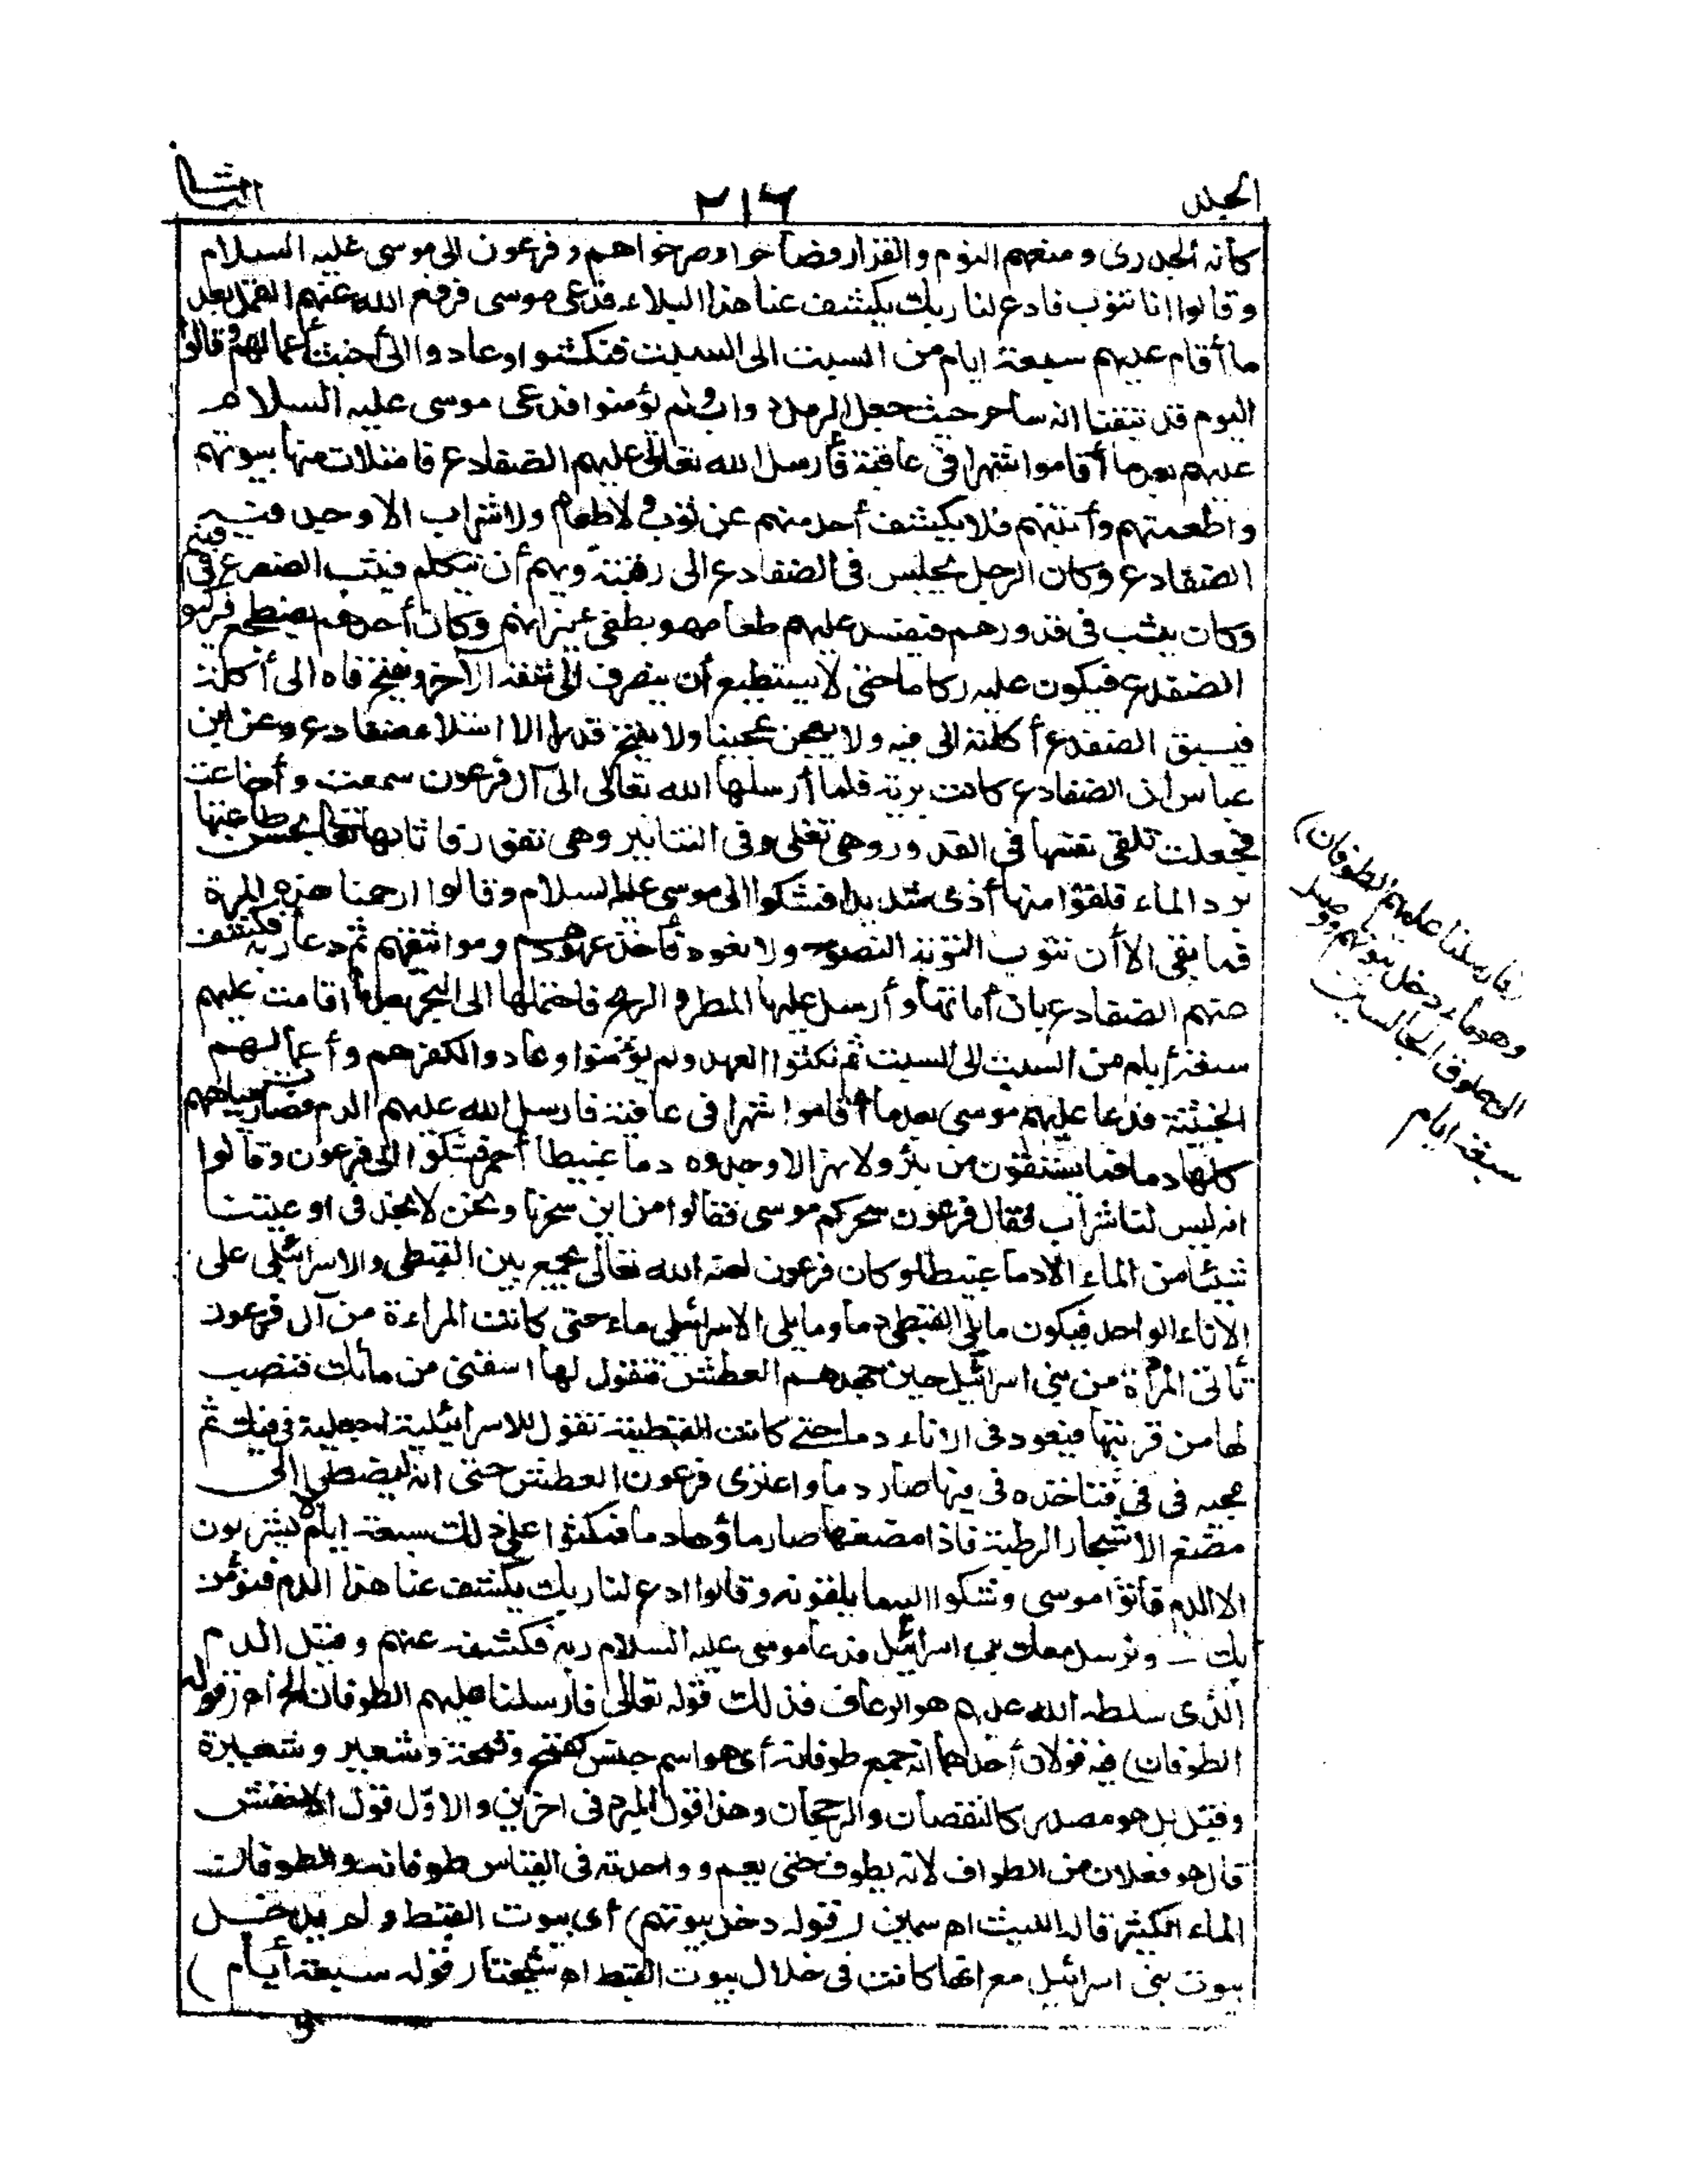 المجلد ٢١٦ الثانى
كأنه الجدرى ومنعهم النوم والقرار فصاحوا وصرخوا هم وفرعون الى موسى عليه السلام
وقالوا انا نتوب فادع لنا ربك يكشف عنا هذا البلاء فدعى موسى فرفع الله عنهم القمل بعد
ما أقام عليهم سبعة ايام من السبت الى السبت فنكثوا وعادوا الى أخبث أعمالهم وقالوا
اليوم قد تيقنا انه ساحر حيث جعل الرمل دواب ولم يؤمنوا فدعى موسى عليه السلام
عليهم بعد ما أقاموا شهرا فى عافية فأرسل الله تعالى عليهم الضفادع فامتلأت منها بيوتهم
واطعمتهم وآنيتهم فلا يكشف أحد منهم عن ثوب ولا طعام ولا شراب الا وجد فيه
الضفادع وكان الرجل يجلس فى الضفادع الى رقبته ويهم أن يتكلم فيثب الضفدع فى فيه
وكان يثب فى قدورهم فيفسد عليهم طعامهم ويطفى نيرانهم وكان أحدهم يضطجع فيركبه
الضفدع فيكون عليه ركاما حتى لا يستطيع أن ينصرف الى شقه الآخر ويفتح فاه الى أكلته
فيسبق الضفدع أكلته الى فيه ولا يعجن عجينا ولا يفتح قدرا الا امتلأ ضفادع وعن ابن
عباس ان الضفادع كانت برية فلما أرسلها الله تعالى الى آل فرعون سمعت وأطاعت
فجعلت تلقى نفسها فى القدور وهى تغلى وفى التنانير وهى تفور فأثابها الله بحسن طاعتها
برد الماء فلقوا منها أذى شديدا فشكوا الى موسى عليه السلام وقالوا ارحمنا هذه المرة
فما بقى الا أن نتوب التوبة النصوح ولا نعود فأخذ عهودهم ومواثيقهم ثم دعا ربه فكشف
عنهم الضفادع بان أماتها وأرسل عليها المطر والريح فاحتملها الى البحر بعد ما أقامت عليهم
سبعة أيام من السبت الى السبت ثم نكثوا العهد ولم يؤمنوا وعادوا لكفرهم وأعمالهم
الخبيثة فدعا عليهم موسى بعد ما أقاموا شهرا فى عافية فارسل الله عليهم الدم فصارت مياههم
كلها دما فما يستقون من بئر ولا نهر الا وجدوه دما عبيطا أحمر فشكوا الى فرعون وقالوا
انه ليس لنا شراب فقال فرعون سحركم موسى فقالوا من اين سحرنا ونحن لا نجد فى اوعيتنا
شيئا من الماء الا دما عبيطا وكان فرعون لعنه الله تعالى يجمع بين القبطى والاسرائيلى على
الاناء الواحد فيكون ما يلى القبطى دما وما يلى الاسرائيلى ماء حتى كانت المرأة من آل فرعون
تأتى المرأة من بنى اسرائيل حين جهدهم العطش فتقول لها اسقنى من مائك فتصب
لها من قربتها فيعود فى الاناء دما حتى كانت القبطية تقول للاسرائيلية اجعليه فى فيك ثم
مجيه فى فى فتاخذه فى فيها صار دما واعترى فرعون العطش حتى انه ليضطر الى
مضغ الاشجار الرطبة فاذا مضغها صار ماؤها دما فمكثوا على ذلك سبعة ايام لا يشربون
الا الدم فأتوا موسى وشكوا اليه ما يلقونه وقالوا ادع لنا ربك يكشف عنا هذا الدم فنؤمن
بك ونرسل معك بنى اسرائيل فدعا موسى عليه السلام ربه فكشف عنهم وقيل الدم
الذى سلطه الله عليهم هو الرعاف فذلك قوله تعالى فأرسلنا عليهم الطوفان الخ اه (قوله
الطوفان) فيه قولان أحدهما انه جمع طوفانة أى هو اسم جنس كقمح وقمحة وشعير وشعيرة
وقيل بل هو مصدر كالنقصان والرجحان وهذا قول المبرد فى اخرين والاوّل قول الاخفش
قال هو فعلان من الطواف لانه يطوف حتى يعم وواحدته فى القياس طوفانة والطوفان
الماء الكثير قاله الليث اه سمين (قوله دخل بيوتهم) أى بيوت القبط ولم يدخل
بيوت بنى اسرائيل مع انها كانت فى خلال بيوت القبط اه شيخنا (قوله سبعة أيام)
فارسلنا عليهم الطوفان)
وهو ماء دخل بيوتهم ووصل
الى حلوق الجالسين
سبعة ايام